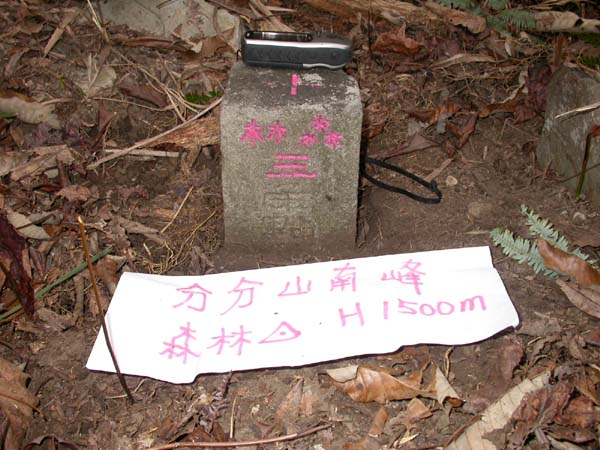 林森
三
分分山南峰
森林△ H1500m